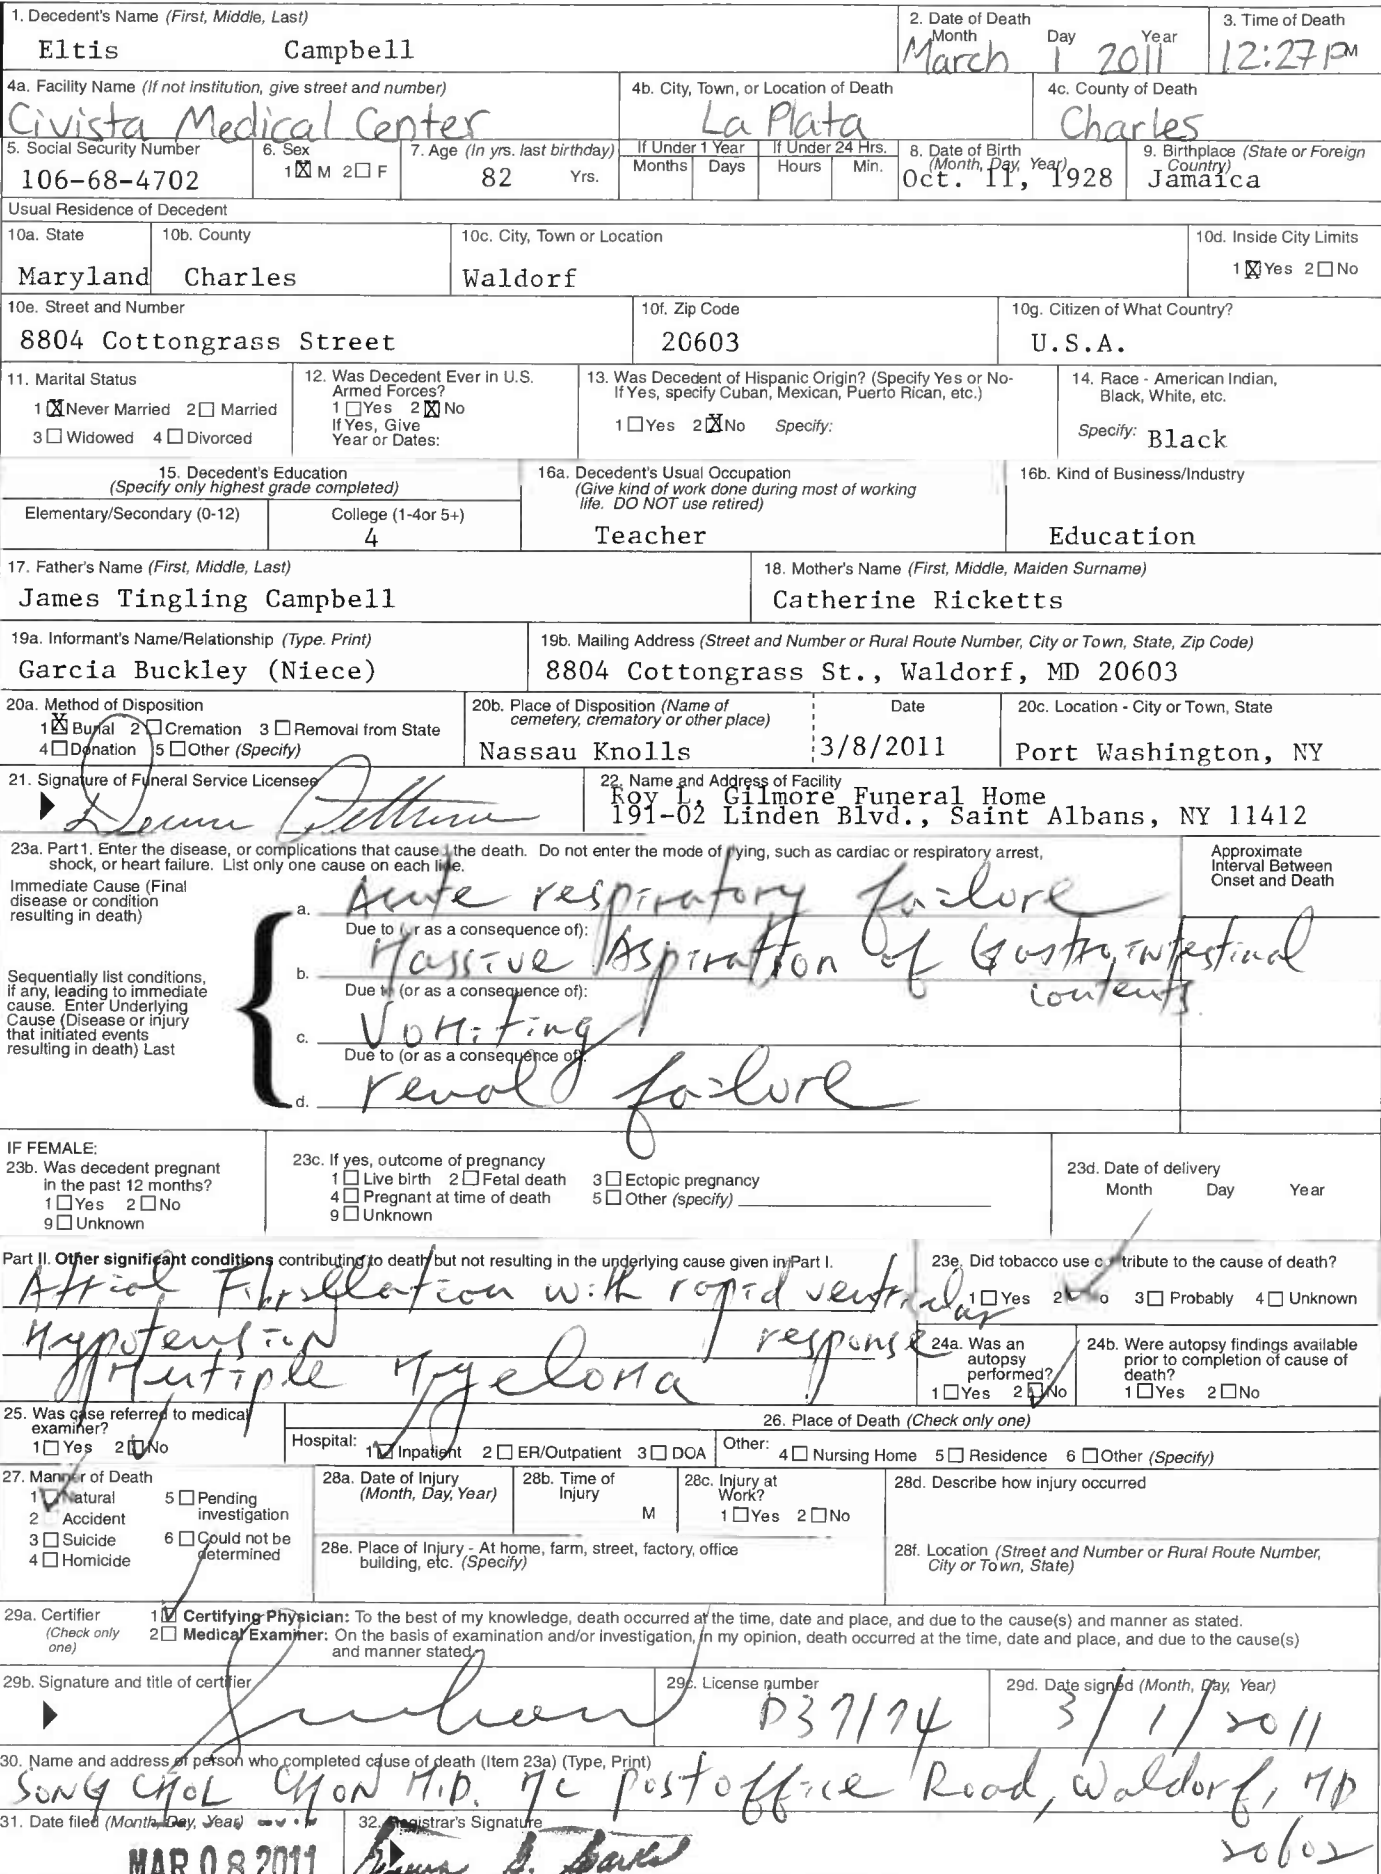 1. Decedent's Name (First, Middle, Last)
Eltis Campbell
2. Date of Death
Month Day Year
March 1 2011
3. Time of Death
12:27 PM
4a. Facility Name (If not institution, give street and number)
Civista Medical Center
4b. City, Town, or Location of Death
La Plata
4c. County of Death
Charles
5. Social Security Number
106-68-4702
6. Sex
1☒ M 2☐ F
7. Age (In yrs. last birthday)
82 Yrs.
If Under 1 Year
Months Days
If Under 24 Hrs.
Hours Min.
8. Date of Birth
(Month, Day, Year)
Oct. 11, 1928
9. Birthplace (State or Foreign
Country)
Jamaica
Usual Residence of Decedent
10a. State
Maryland
10b. County
Charles
10c. City, Town or Location
Waldorf
10d. Inside City Limits
1☒Yes 2☐No
10e. Street and Number
8804 Cottongrass Street
10f. Zip Code
20603
10g. Citizen of What Country?
U.S.A.
11. Marital Status
1☒Never Married 2☐ Married
3☐ Widowed 4☐ Divorced
12. Was Decedent Ever in U.S.
Armed Forces?
1☐Yes 2☒No
If Yes, Give
Year or Dates:
13. Was Decedent of Hispanic Origin? (Specify Yes or No-
If Yes, specify Cuban, Mexican, Puerto Rican, etc.)
1☐Yes 2☒No Specify:
14. Race - American Indian,
Black, White, etc.
Specify: Black
15. Decedent's Education
(Specify only highest grade completed)
Elementary/Secondary (0-12)
College (1-4or 5+)
4
16a. Decedent's Usual Occupation
(Give kind of work done during most of working
life. DO NOT use retired)
Teacher
16b. Kind of Business/Industry
Education
17. Father's Name (First, Middle, Last)
James Tingling Campbell
18. Mother's Name (First, Middle, Maiden Surname)
Catherine Ricketts
19a. Informant's Name/Relationship (Type. Print)
Garcia Buckley (Niece)
19b. Mailing Address (Street and Number or Rural Route Number, City or Town, State, Zip Code)
8804 Cottongrass St., Waldorf, MD 20603
20a. Method of Disposition
1☒ Burial 2☐Cremation 3☐Removal from State
4☐Donation 5☐Other (Specify)
20b. Place of Disposition (Name of
cemetery, crematory or other place)
Nassau Knolls
Date
3/8/2011
20c. Location - City or Town, State
Port Washington, NY
21. Signature of Funeral Service Licensee
22. Name and Address of Facility
Roy L. Gilmore Funeral Home
191-02 Linden Blvd., Saint Albans, NY 11412
23a. Part1. Enter the disease, or complications that caused the death. Do not enter the mode of dying, such as cardiac or respiratory arrest,
shock, or heart failure. List only one cause on each line.
Approximate
Interval Between
Onset and Death
Immediate Cause (Final
disease or condition
resulting in death)
a. Acute respiratory failure
Due to (or as a consequence of):
b. Massive Aspiration of Gastrointestinal
contents
Due to (or as a consequence of):
Sequentially list conditions,
if any, leading to immediate
cause. Enter Underlying
Cause (Disease or injury
that initiated events
resulting in death) Last
c. Vomiting
Due to (or as a consequence of):
d. renal failure
IF FEMALE:
23b. Was decedent pregnant
in the past 12 months?
1☐Yes 2☐No
9☐Unknown
23c. If yes, outcome of pregnancy
1☐ Live birth 2☐ Fetal death 3☐ Ectopic pregnancy
4☐ Pregnant at time of death 5☐ Other (specify)
9☐ Unknown
23d. Date of delivery
Month Day Year
Part II. Other significant conditions contributing to death but not resulting in the underlying cause given in Part I.
Atrial Fibrillation with rapid ventricular
response
Hypotension
Multiple Myeloma
23e. Did tobacco use contribute to the cause of death?
1☐Yes 2☑No 3☐ Probably 4☐ Unknown
24a. Was an
autopsy
performed?
1☐Yes 2☑No
24b. Were autopsy findings available
prior to completion of cause of
death?
1☐Yes 2☐No
25. Was case referred to medical
examiner?
1☐Yes 2☑No
26. Place of Death (Check only one)
Hospital: 1☑Inpatient 2☐ER/Outpatient 3☐DOA
Other: 4☐ Nursing Home 5☐ Residence 6☐Other (Specify)
27. Manner of Death
1☑Natural 5☐ Pending
investigation
2 Accident
3☐ Suicide 6☐ Could not be
determined
4☐ Homicide
28a. Date of Injury
(Month, Day, Year)
28b. Time of
Injury
M
28c. Injury at
Work?
1☐Yes 2☐No
28d. Describe how injury occurred
28e. Place of Injury - At home, farm, street, factory, office
building, etc. (Specify)
28f. Location (Street and Number or Rural Route Number,
City or Town, State)
29a. Certifier
(Check only
one)
1☑ Certifying Physician: To the best of my knowledge, death occurred at the time, date and place, and due to the cause(s) and manner as stated.
2☐ Medical Examiner: On the basis of examination and/or investigation, in my opinion, death occurred at the time, date and place, and due to the cause(s)
and manner stated.
29b. Signature and title of certifier
29c. License number
D37174
29d. Date signed (Month, Day, Year)
3/1/2011
30. Name and address of person who completed cause of death (Item 23a) (Type, Print)
SONG CHOL CHON M.D. 7C post office Road, Waldorf, MD
20602
31. Date filed (Month, Day, Year)
MAR 08 2011
32. Registrar's Signature